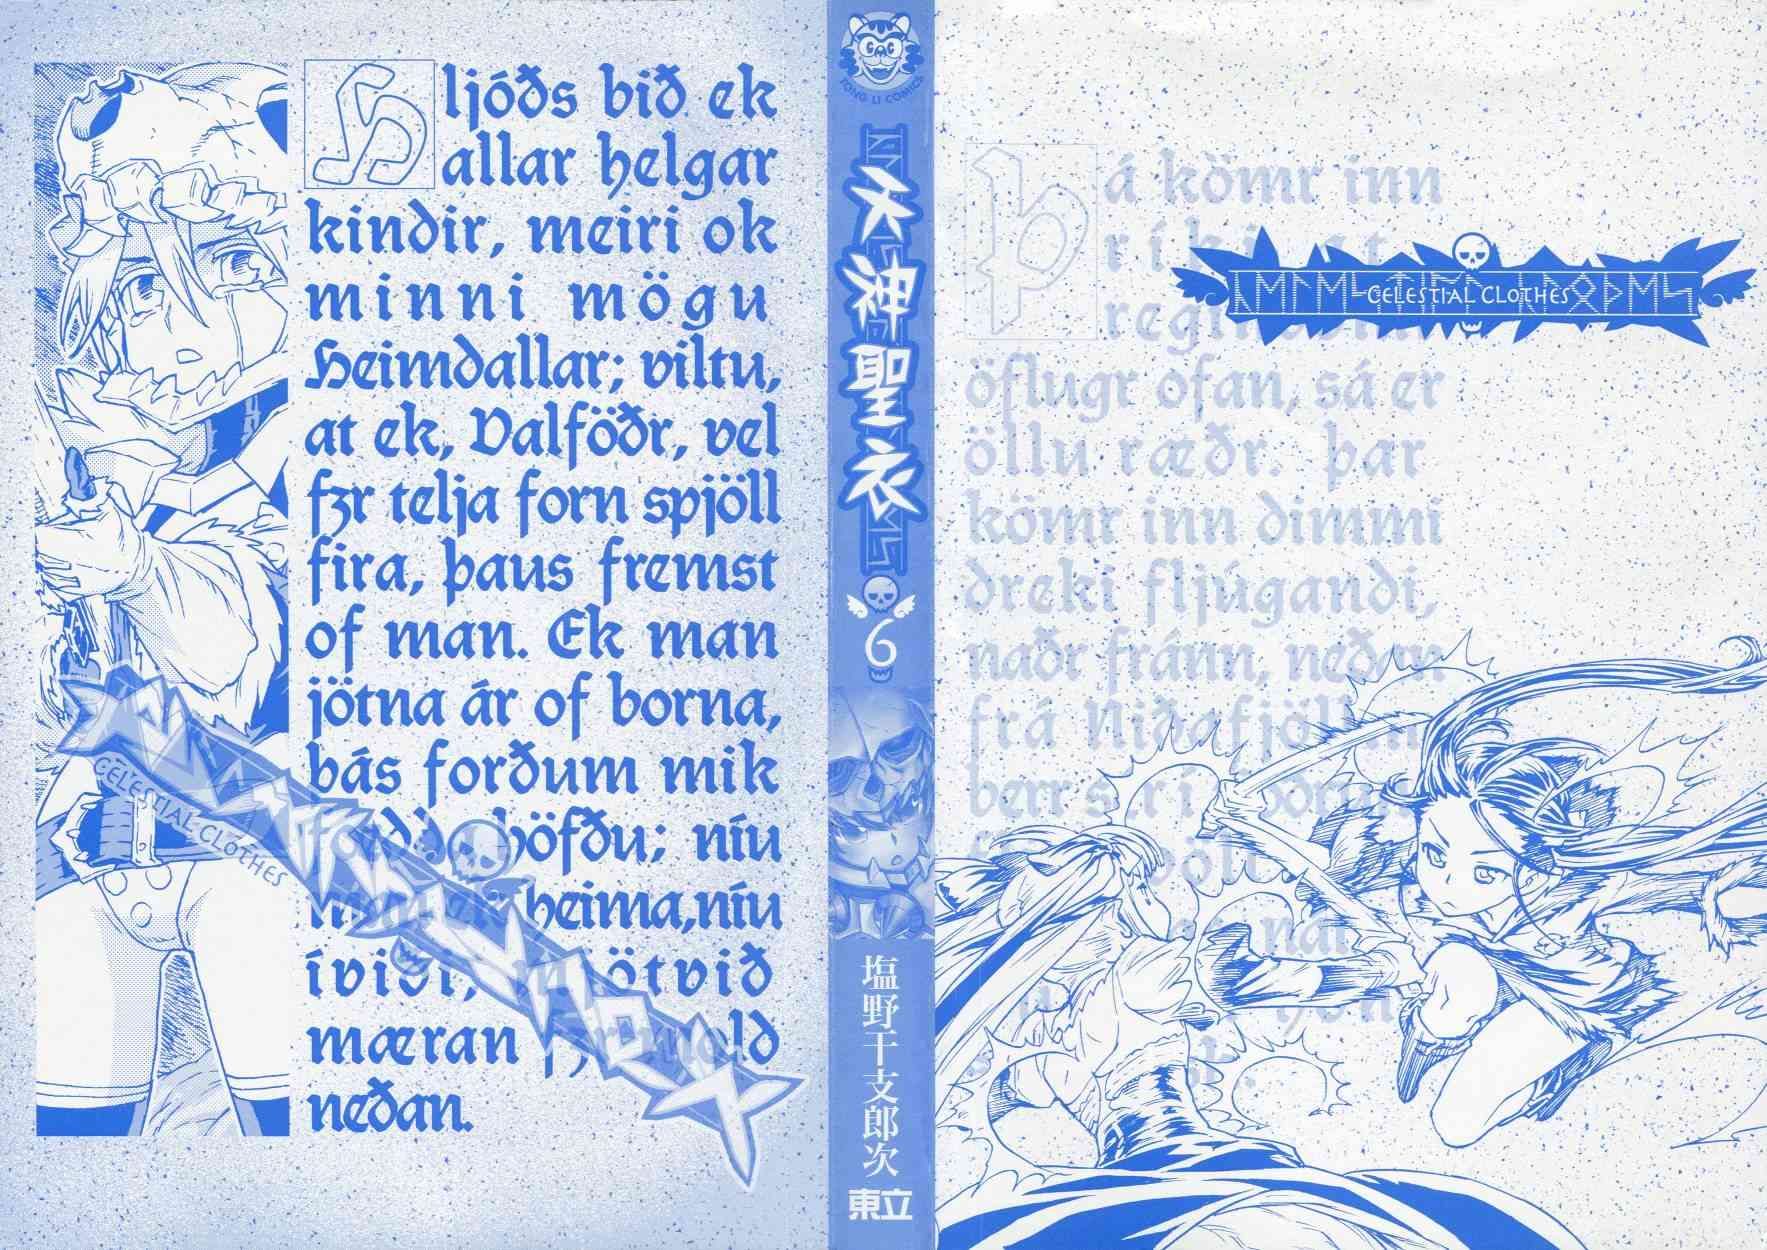 Hljóðs bið ek
allar helgar
kindir, meiri ok
minni mögu
Heimdallar; viltu,
at ek, Valföðr, vel
fʒr telja forn spjöll
fira, þaus fremst
of man. Ek man
jötna ár of borna,
þás forðum mik
höfðu; níu
heima, níu
mætvið
mæran
neðan.
CELESTIAL CLOTHES
TONG LI COMICS
天神聖衣
6
塩野干支郎次
東立
Þá kömr inn
ríki at
öflugr ofan, sá er
öllu ræðr. þar
kömr inn dimmi
dreki fljúgandi,
naðr fránn, neðan
frá Niðafjöll
berr
CELESTIAL CLOTHES